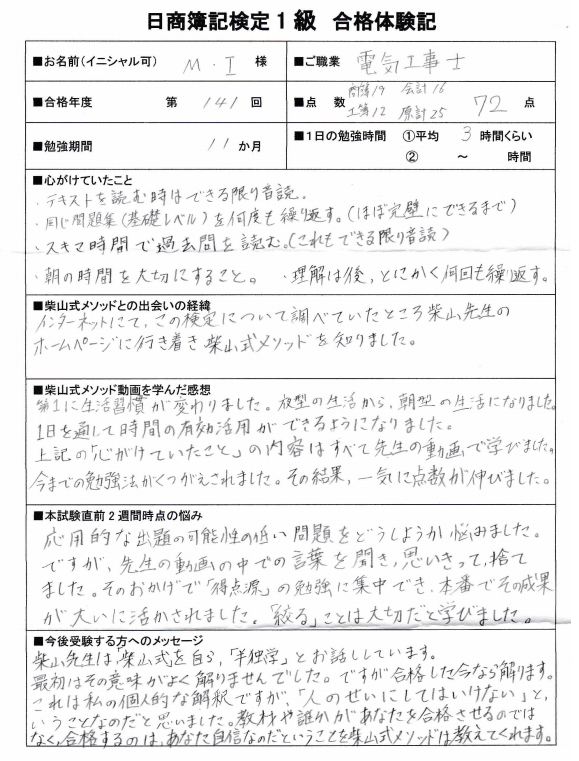 日商簿記検定1級 合格体験記
■お名前(イニシャル可) M．I 様
■ご職業 電気工事士
■合格年度 第 141 回
■点 数 商簿19 会計16 工簿12 原計25 72 点
■勉強期間 11 か月
■1日の勉強時間 ①平均 3 時間くらい
② ～ 時間
■心がけていたこと
・テキストを読む時はできる限り音読。
・同じ問題集(基礎レベル)を何度も繰り返す。(ほぼ完璧にできるまで)
・スキマ時間で過去問を読む。(これもできる限り音読)
・朝の時間を大切にすること。 ・理解は後，とにかく何回も繰り返す。
■柴山式メソッドとの出会いの経緯
インターネットにて，この検定について調べていたところ柴山先生の
ホームページに行き着き柴山式メソッドを知りました。
■柴山式メソッド動画を学んだ感想
第1に生活習慣が変わりました。夜型の生活から，朝型の生活になりました。
1日を通して時間の有効活用ができるようになりました。
上記の「心がけていたこと」の内容はすべて先生の動画で学びました。
今までの勉強法がくつがえされました。その結果，一気に点数が伸びました。
■本試験直前2週間時点の悩み
応用的な出題の可能性の低い問題をどうしようか悩みました。
ですが，先生の動画の中での言葉を聞き，思いきって，捨て
ました。そのおかげで「得点源」の勉強に集中でき，本番でその成果
が大いに活かされました。「絞る」ことは大切だと学びました。
■今後受験する方へのメッセージ
柴山先生は，「柴山式を自ら，「半独学」とお話ししています。
最初はその意味がよく解りませんでした。ですが合格した今なら解ります。
これは私の個人的な解釈ですが，「人のせいにしてはいけない」と，
いうことなのだと思いました。教材や誰かがあなたを合格させるのでは
なく，合格するのは，あなた自信なのだということを柴山式メソッドは教えてくれます。